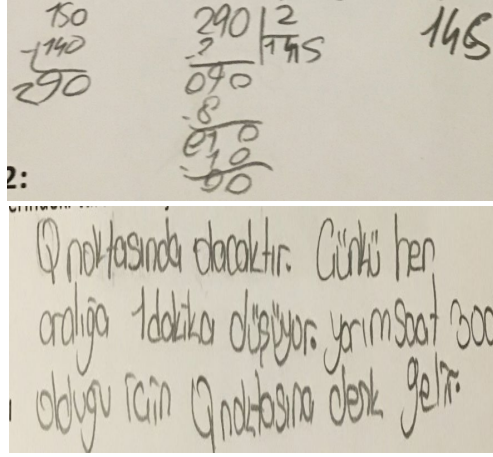 150
+140
290
290 | 2
-2 | 145
090
-8
010
-10
00
145
2:
Q noktasında olacaktır. Çünkü her
aralığa 1 dakika düşüyor. yarım saat 300
olduğu için Q noktasına denk gelir.